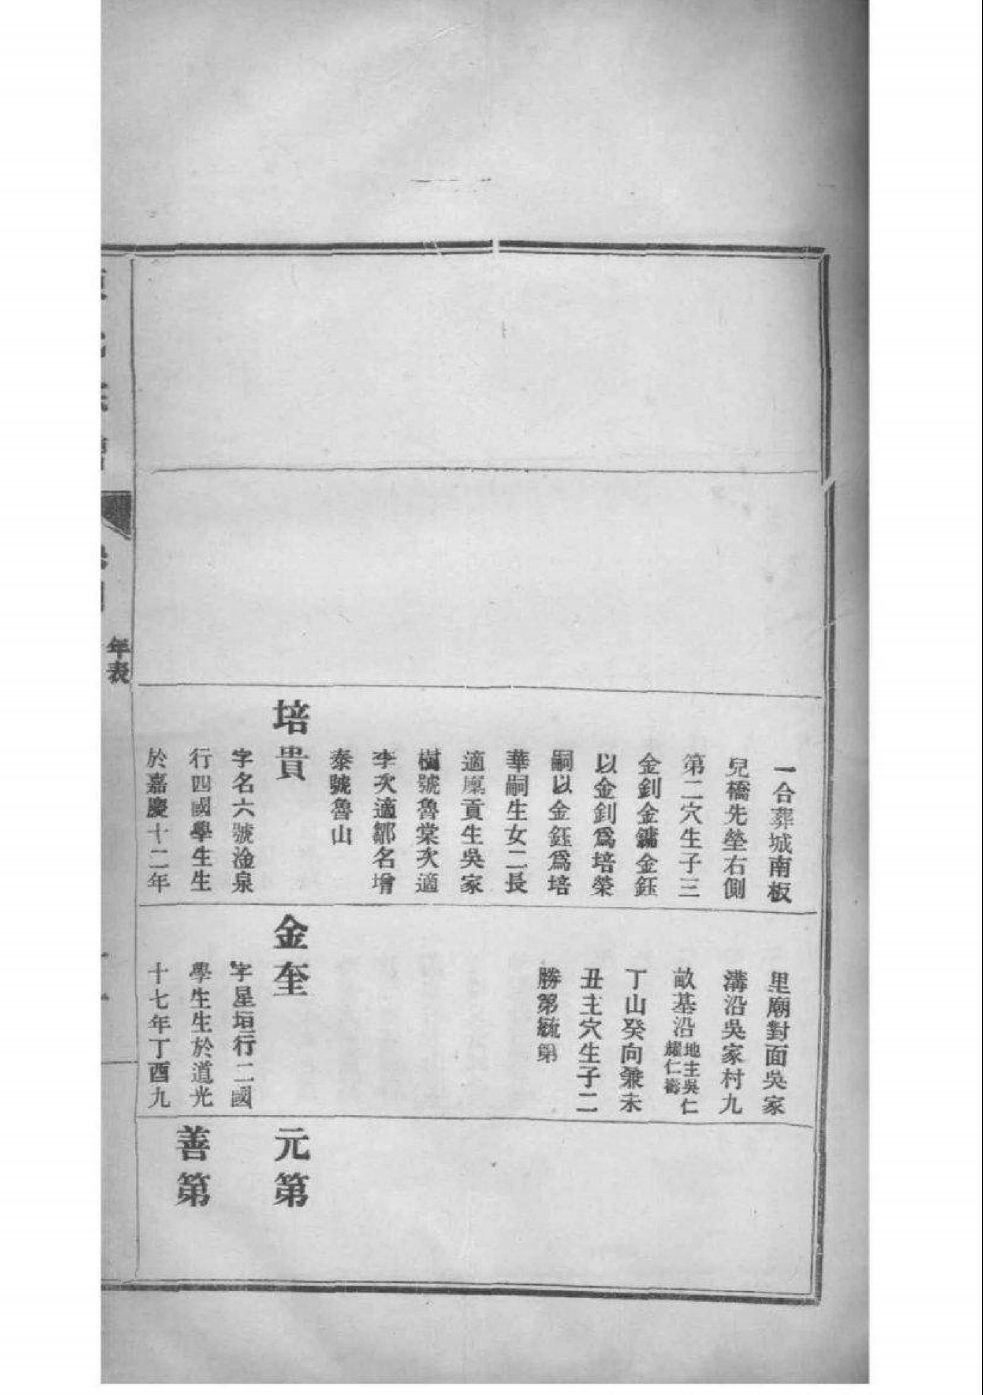 一合葬城南板
兒橋先塋右側
第二穴生子三
金釗金鏞金鈺
以金釗爲培榮
嗣以金鈺爲培
華嗣生女二長
適廩貢生吳家
樹號魯棠次適
李次適鄒名增
泰號魯山
培貴
字名六號淦泉
行四國學生生
於嘉慶十二年
里廟對面吳家
溝沿吳家村九
畝基沿地主吳仁
耀仁壽
丁山癸向兼未
丑主穴生子二
勝第毓第
金奎
字星垣行二國
學生生於道光
十七年丁酉九
元第
善第
年表